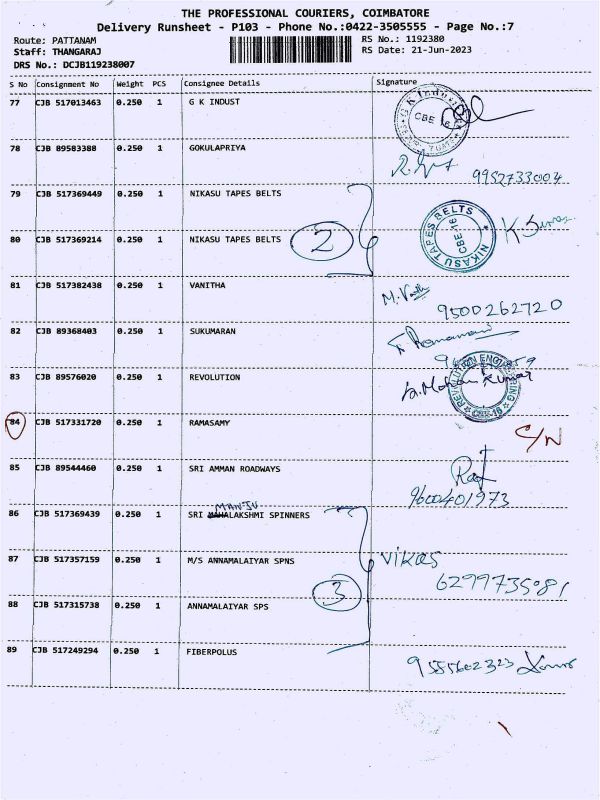 THE PROFESSIONAL COURIERS, COIMBATORE
Delivery Runsheet - P103 - Phone No.:0422-3505555 - Page No.:7
Route: PATTANAM RS No.: 1192380
Staff: THANGARAJ RS Date: 21-Jun-2023
DRS No.: DCJB119238007
S No Consignment No Weight PCS Consignee Details Signature
77 CJB 517013463 0.250 1 G K INDUST
CBE 16
78 CJB 89583388 0.250 1 GOKULAPRIYA
9952733004
79 CJB 517369449 0.250 1 NIKASU TAPES BELTS
NIKASU TAPES BELTS CBE-16
80 CJB 517369214 0.250 1 NIKASU TAPES BELTS 2
81 CJB 517382438 0.250 1 VANITHA
9500262720
82 CJB 89368403 0.250 1 SUKUMARAN
83 CJB 89576020 0.250 1 REVOLUTION
REVOLUTION ENGINEERING CBE-16
A. Mohan Kumar
84 CJB 517331720 0.250 1 RAMASAMY
C/N
85 CJB 89544460 0.250 1 SRI AMMAN ROADWAYS
9600401973
MANJU
86 CJB 517369439 0.250 1 SRI MAHALAKSHMI SPINNERS
87 CJB 517357159 0.250 1 M/S ANNAMALAIYAR SPNS Vikas
6299735081
3
88 CJB 517315738 0.250 1 ANNAMALAIYAR SPS
89 CJB 517249294 0.250 1 FIBERPOLUS
9555602323